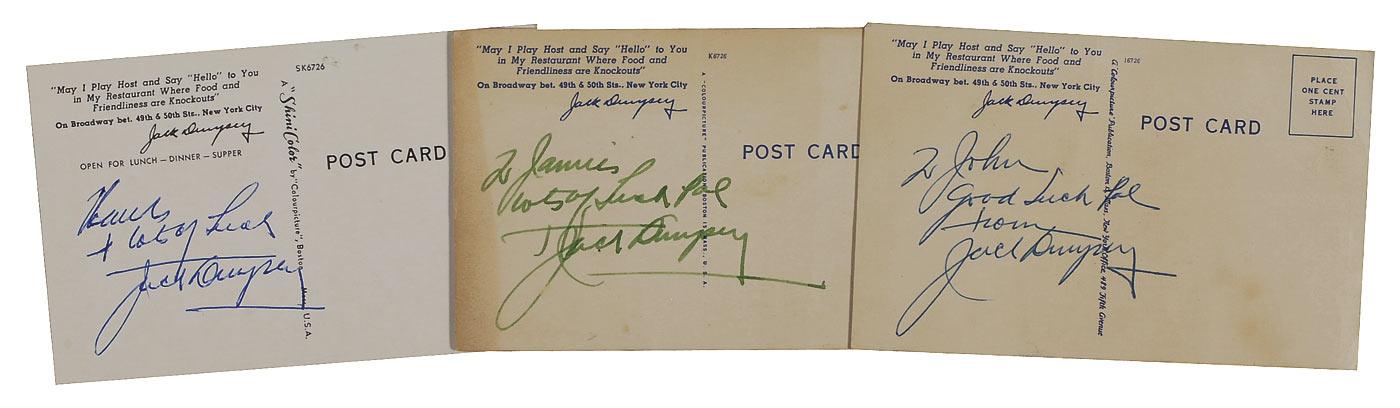 SK6726
"May I Play Host and Say "Hello" to You
in My Restaurant Where Food and
Friendliness are Knockouts"
On Broadway bet. 49th & 50th Sts., New York City
Jack Dempsey
OPEN FOR LUNCH — DINNER — SUPPER
A "ShiniColor" by "Colourpicture", Boston U.S.A.
POST CARD
Thanks
+ lots of Luck
Jack Dempsey
"May I Play Host and Say "Hello" to You
in My Restaurant Where Food and
Friendliness are Knockouts"
On Broadway bet. 49th & 50th Sts., New York City
Jack Dempsey
K6726
A "COLOURPICTURE" PUBLICATION BOSTON MASS., U.S.A.
POST CARD
To
lots of Luck Pal
Jack Dempsey
"May I Play Host and Say "Hello" to You
in My Restaurant Where Food and
Friendliness are Knockouts"
On Broadway bet. 49th & 50th Sts., New York City
Jack Dempsey
16726
A "Colourpicture" Publication, Boston Mass., New York Office, 489 Fifth Avenue
POST CARD
PLACE
ONE CENT
STAMP
HERE
To John
Good Luck Pal
from
Jack Dempsey